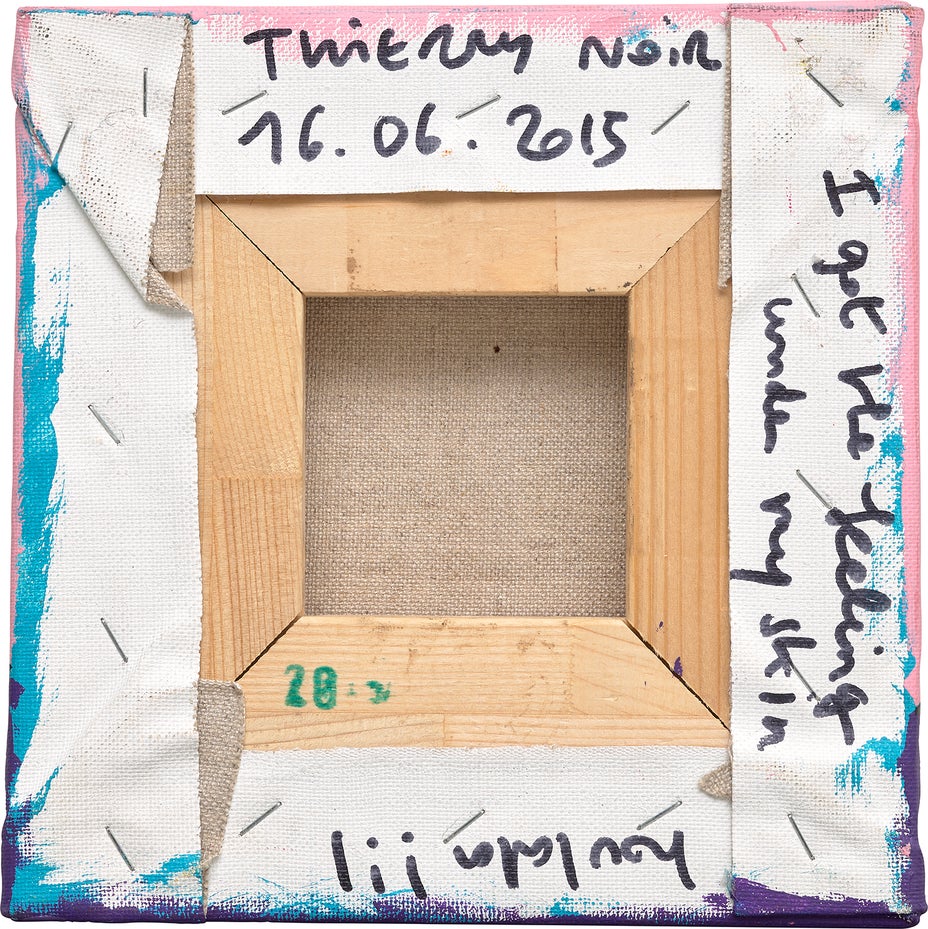 Thierry Noir
16.06.2015
I got the feeling
under my skin
houlala !!!
28